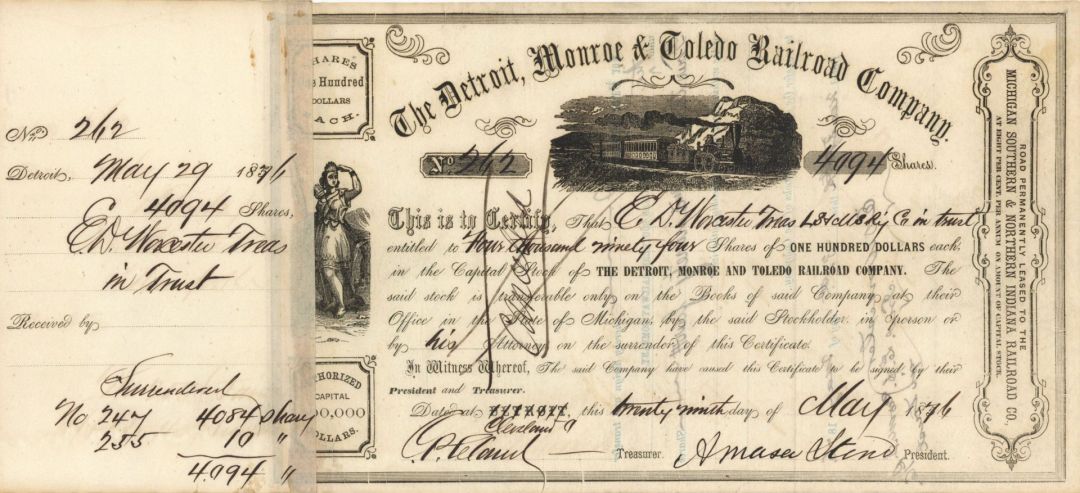 No 262
Detroit, May 29 1876
4094 Shares,
E.D. Worcester Treas
in Trust
Received by
Surrendered
No 247 4084 Shares
255 10 "
4094 "
SHARES
Hundred
DOLLARS
EACH.
CAPITAL
DOLLARS.
The Detroit, Monroe & Toledo Railroad Company.
No. 262
4094 Shares.
This is to Certify, That E D. Worcester Treas L S & M S Ry Co in trust
entitled to Four thousand ninety four Shares of ONE HUNDRED DOLLARS each,
in the Capital Stock of THE DETROIT, MONROE AND TOLEDO RAILROAD COMPANY. The
said stock is transferable only on the Books of said Company, at their
Office in the State of Michigan, by the said Stockholder, in person or
by his Attorney on the surrender of this Certificate.
In Witness Whereof, The said Company have caused this Certificate to be signed by their
President and Treasurer.
Dated at DETROIT, this twenty ninth day of May 1876
Cleveland O
Treasurer. Amasa Stone President.
ROAD PERMANENTLY LEASED TO THE
MICHIGAN SOUTHERN & NORTHERN INDIANA RAILROAD CO.
AT EIGHT PER CENT. PER ANNUM ON AMOUNT OF CAPITAL STOCK.